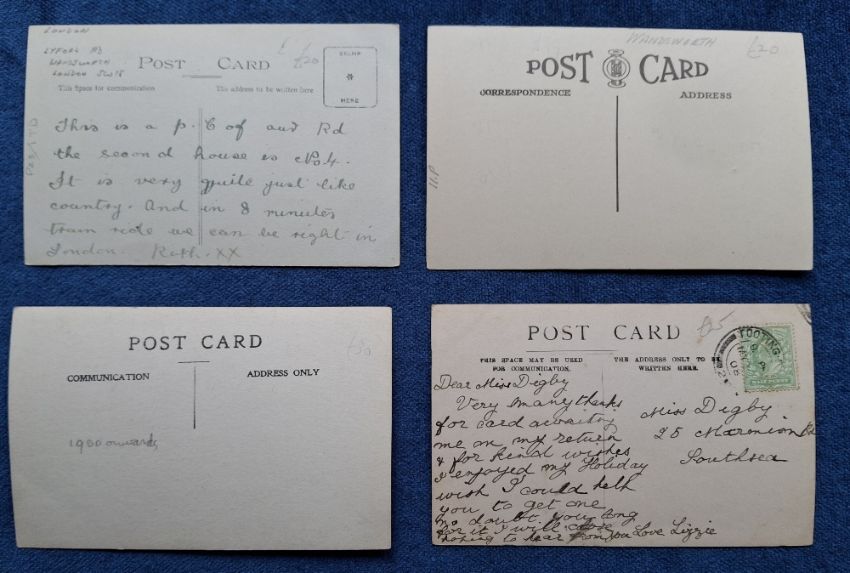 LONDON
LYFORD RD
WANDSWORTH
LONDON SW18
£20
POST CARD
STAMP
HERE
This Space for communication
The address to be written here
This is a p. C of aur Rd
the second house is No 4.
It is very quite just like
country. And in 8 minutes
train ride we can be right in
London. Ruth. XX
WANDSWORTH
£20
POST CARD
CORRESPONDENCE
ADDRESS
11.P
POST CARD
COMMUNICATION
ADDRESS ONLY
1930 onwards
£25
POST CARD
TOOTING
THIS SPACE MAY BE USED
FOR COMMUNICATION.
THE ADDRESS ONLY TO BE
WRITTEN HERE.
Dear Miss Digby
Very many thanks
for card awaiting
me on my return
& for kind wishes
I enjoyed my Holiday
wish I could help
you to get one
no doubt you long
for it I will close
hoping to hear from you Love Lizzie
Miss Digby
25 Marmion Rd
Southsea